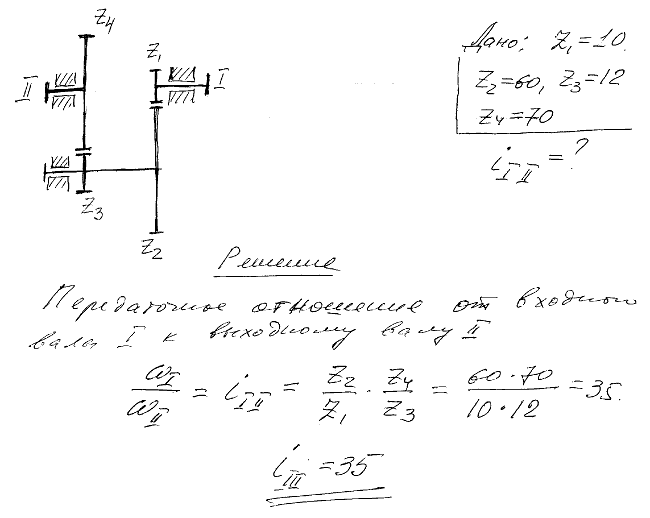 Z4
Z1
II
I
Z3
Z2
Дано: Z1=10.
Z2=60, Z3=12
Z4=70
i I II = ?
Решение
Передаточное отношение от входного
вала I к выходному валу II
ωI/ωII = i I II = Z2/Z1 · Z4/Z3 = 60·70/10·12 = 35.
i I II = 35